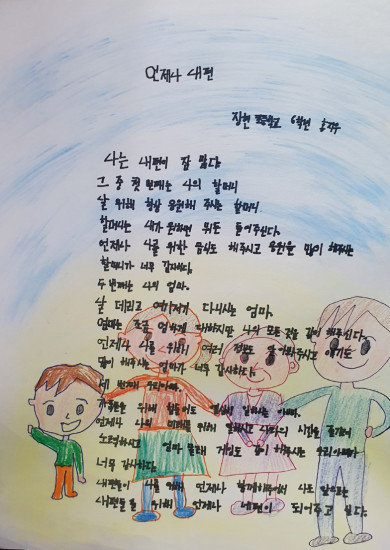 언제나 내편
장현 초등학교 6학년
나는 내편이 참 많다.
그 중 첫 번째는 나의 할머니
날 위해 항상 응원해 주시는 할머니
할머니는 내가 원하면 뭐든 들어주신다.
언제나 나를 위한 음식도 해주시고 응원을 많이 해주시는
할머니가 너무 감사하다.
두 번째는 나의 엄마.
날 데리고 여기저기 다니시는 엄마.
엄마는 조금 엄하게 대하지만 나의 모든 것을 같이 해주신다.
언제나 나를 위해 여러 정보도 알아봐주시고 얘기도
많이 해주시는 엄마가 너무 감사하다.
세 번째 우리아빠.
가족을 위해 힘들어도 일하시는 아빠.
언제나 나의 미래를 위해 일하시고 나와의 시간을
노력하시고 엄마 몰래 게임도 같이 해주시는 우리아빠가
너무 감사하다
내편들이 나를 위해 언제나 함께해주어서 나도 앞으로는
내편들을 위해 언제나 네편이 되어주고 싶다.